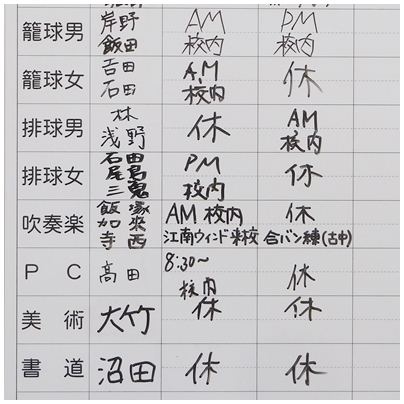 籠球男 岸野 AM PM
飯田 校内 校内
籠球女 吉田 AM 休
石田 校内
排球男 林 休 AM
浅野 校内
排球女 石田 PM 休
尾島 校内
三鬼
吹奏楽 飯塚 AM 校内 休
加来 江南ウィンド来校 合バン練(古中)
寺西
PC 高田 8:30~ 休
校内
美術 大竹 休 休
書道 沼田 休 休